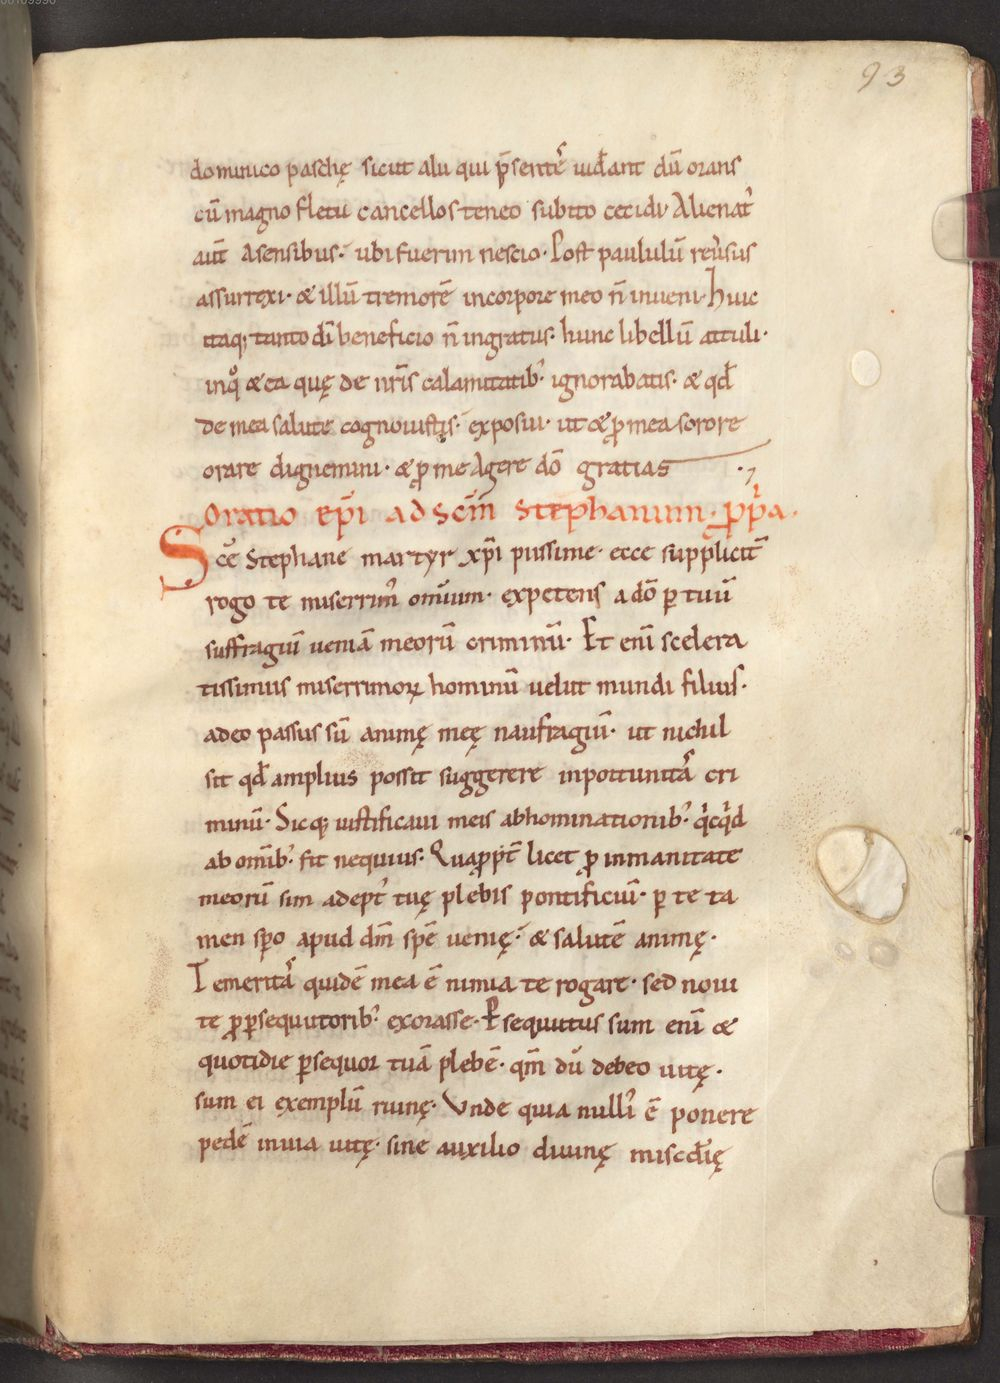 93
dominico paschę sicut alii qui p̄sentēs uid̄ant dū orans
cū magno fletu cancellos teneo subito cecidi· Alienat᷒
aut̄ a sensibus· ubi fuerim nescio· Post paululū reu̓sus
assurrexi· & illū tremorē in corpore meo n̄ inueni· Huic
itaq; tanto dī beneficio n̄ ingratus· hunc libellū attuli·
in quo & ea quę de nr̄is calamitatib᷒ ignorabatis· & qd̄
de mea salute cognouistis· exposui· ut & ꝓ mea sorore
orare dignemini· & ꝓ me agere dō gratias
Oratio ep̄i ad sc̄m Stephanum· ꝓp̓a·
Sc̄e Stephane martyr xp̄i piissime· ecce supplicit̄
rogo te miserrim᷒ omīum· expetens a dō ꝑ tuū
suffragiū ueniā meorū criminū· Et enī scelera
tissimus miserrimoꝝ hominū uelut mundi filius·
adeo passus sū animę meę naufragiū· ut nichil
sit qd̄ amplius possit suggerere inportunitas̄ cri
minū· Sicq; iustificaui meis abhominationib᷒ qͥcqͥd
ab omīb᷒ fit nequius· Quaꝓpt̄ licet ꝓ inmanitate
meorū sim adept᷒ tuę plebis pontificiū· ꝑ te ta
men sꝑo apud dm̄ spē uenię· & salutē animę·
Temeritas̄ quidē mea ē nimia te rogare· sed noui
te ꝓ ꝑsequutorib᷒ exorasse· Ꝑsequutus sum enī &
quotidie ꝑsequor tuā plebē· qm̄ dū debeo uitę·
sum ei exemplū ruinę· Vnde quia nulli᷒ ē ponere
pedē in uia uitę· sine auxilio diuinę misc̄dię